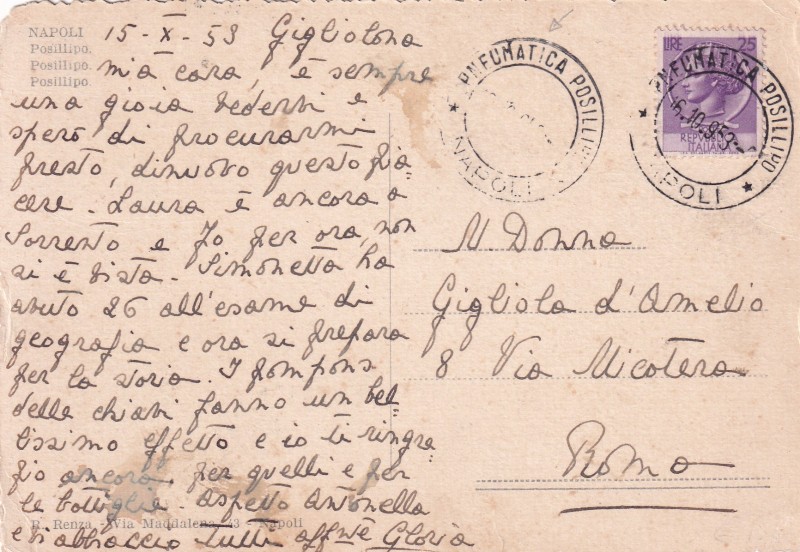 NAPOLI
Posillipo.
Posillipo.
Posillipo.
15-X-53 Gigliolona
mia cara, è sempre
una gioia vederti e
spero di procurarmi
presto, dinuovo questo pia
cere. Laura è ancora a
Sorrento e Jo per ora non
si è vista. Simonetta ha
avuto 26 all'esame di
geografia e ora si prepara
per la storia. I pompons
delle chiavi fanno un bel
lissimo effetto e io ti ringra
zio ancora per quelli e per
le bottiglie. Aspetto Antonella
e vi abbraccio tutti affmte Gloria
R. Renza - Via Maddalena, 43 - Napoli
PNEUMATICA POSILLIPO
NAPOLI
LIRE 25
REPVBBLICA
ITALIANA
PNEUMATICA POSILLIPO
NAPOLI
N. Donna
Gigliola d'Amelio
8 Via Nicotera
Roma